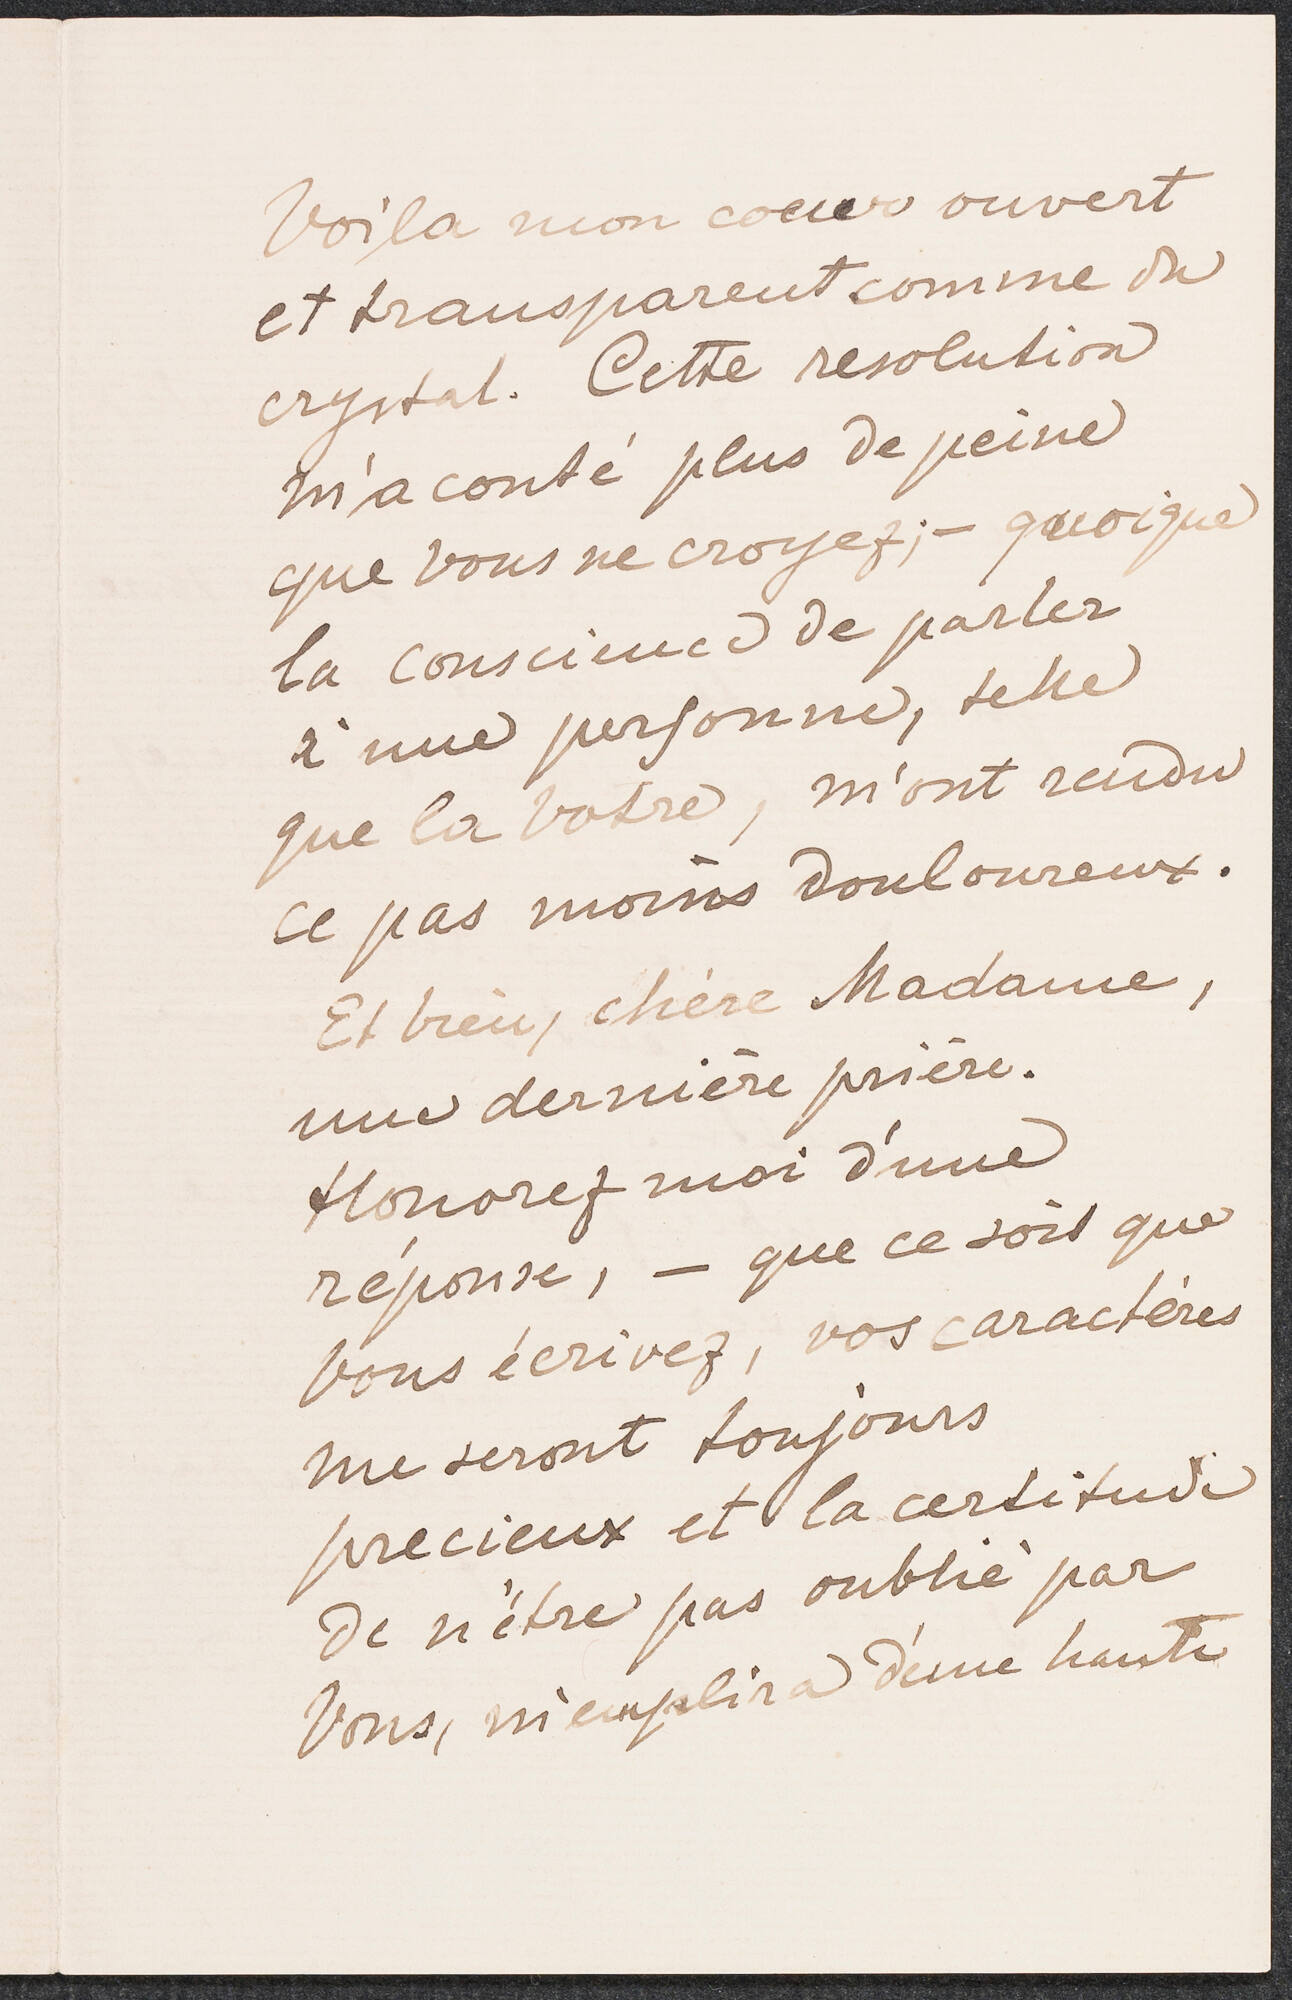 Voila mon coeur ouvert
et transparent comme du
crystal. Cette resolution
m'a conté plus de peine
que vous ne croyez;- quoique
la conscience de parler
à une personne, telle
que la votre, m'ont rendu
ce pas moins douloureux.
Et bien, chère Madame,
une dernière prière.
Honorez moi d'une
réponse, - que ce soit que
vous écrivez, vos caractères
me seront toujours
precieux et la certitude
de n'être pas oublié par
Vous, m'emplira d'une haute